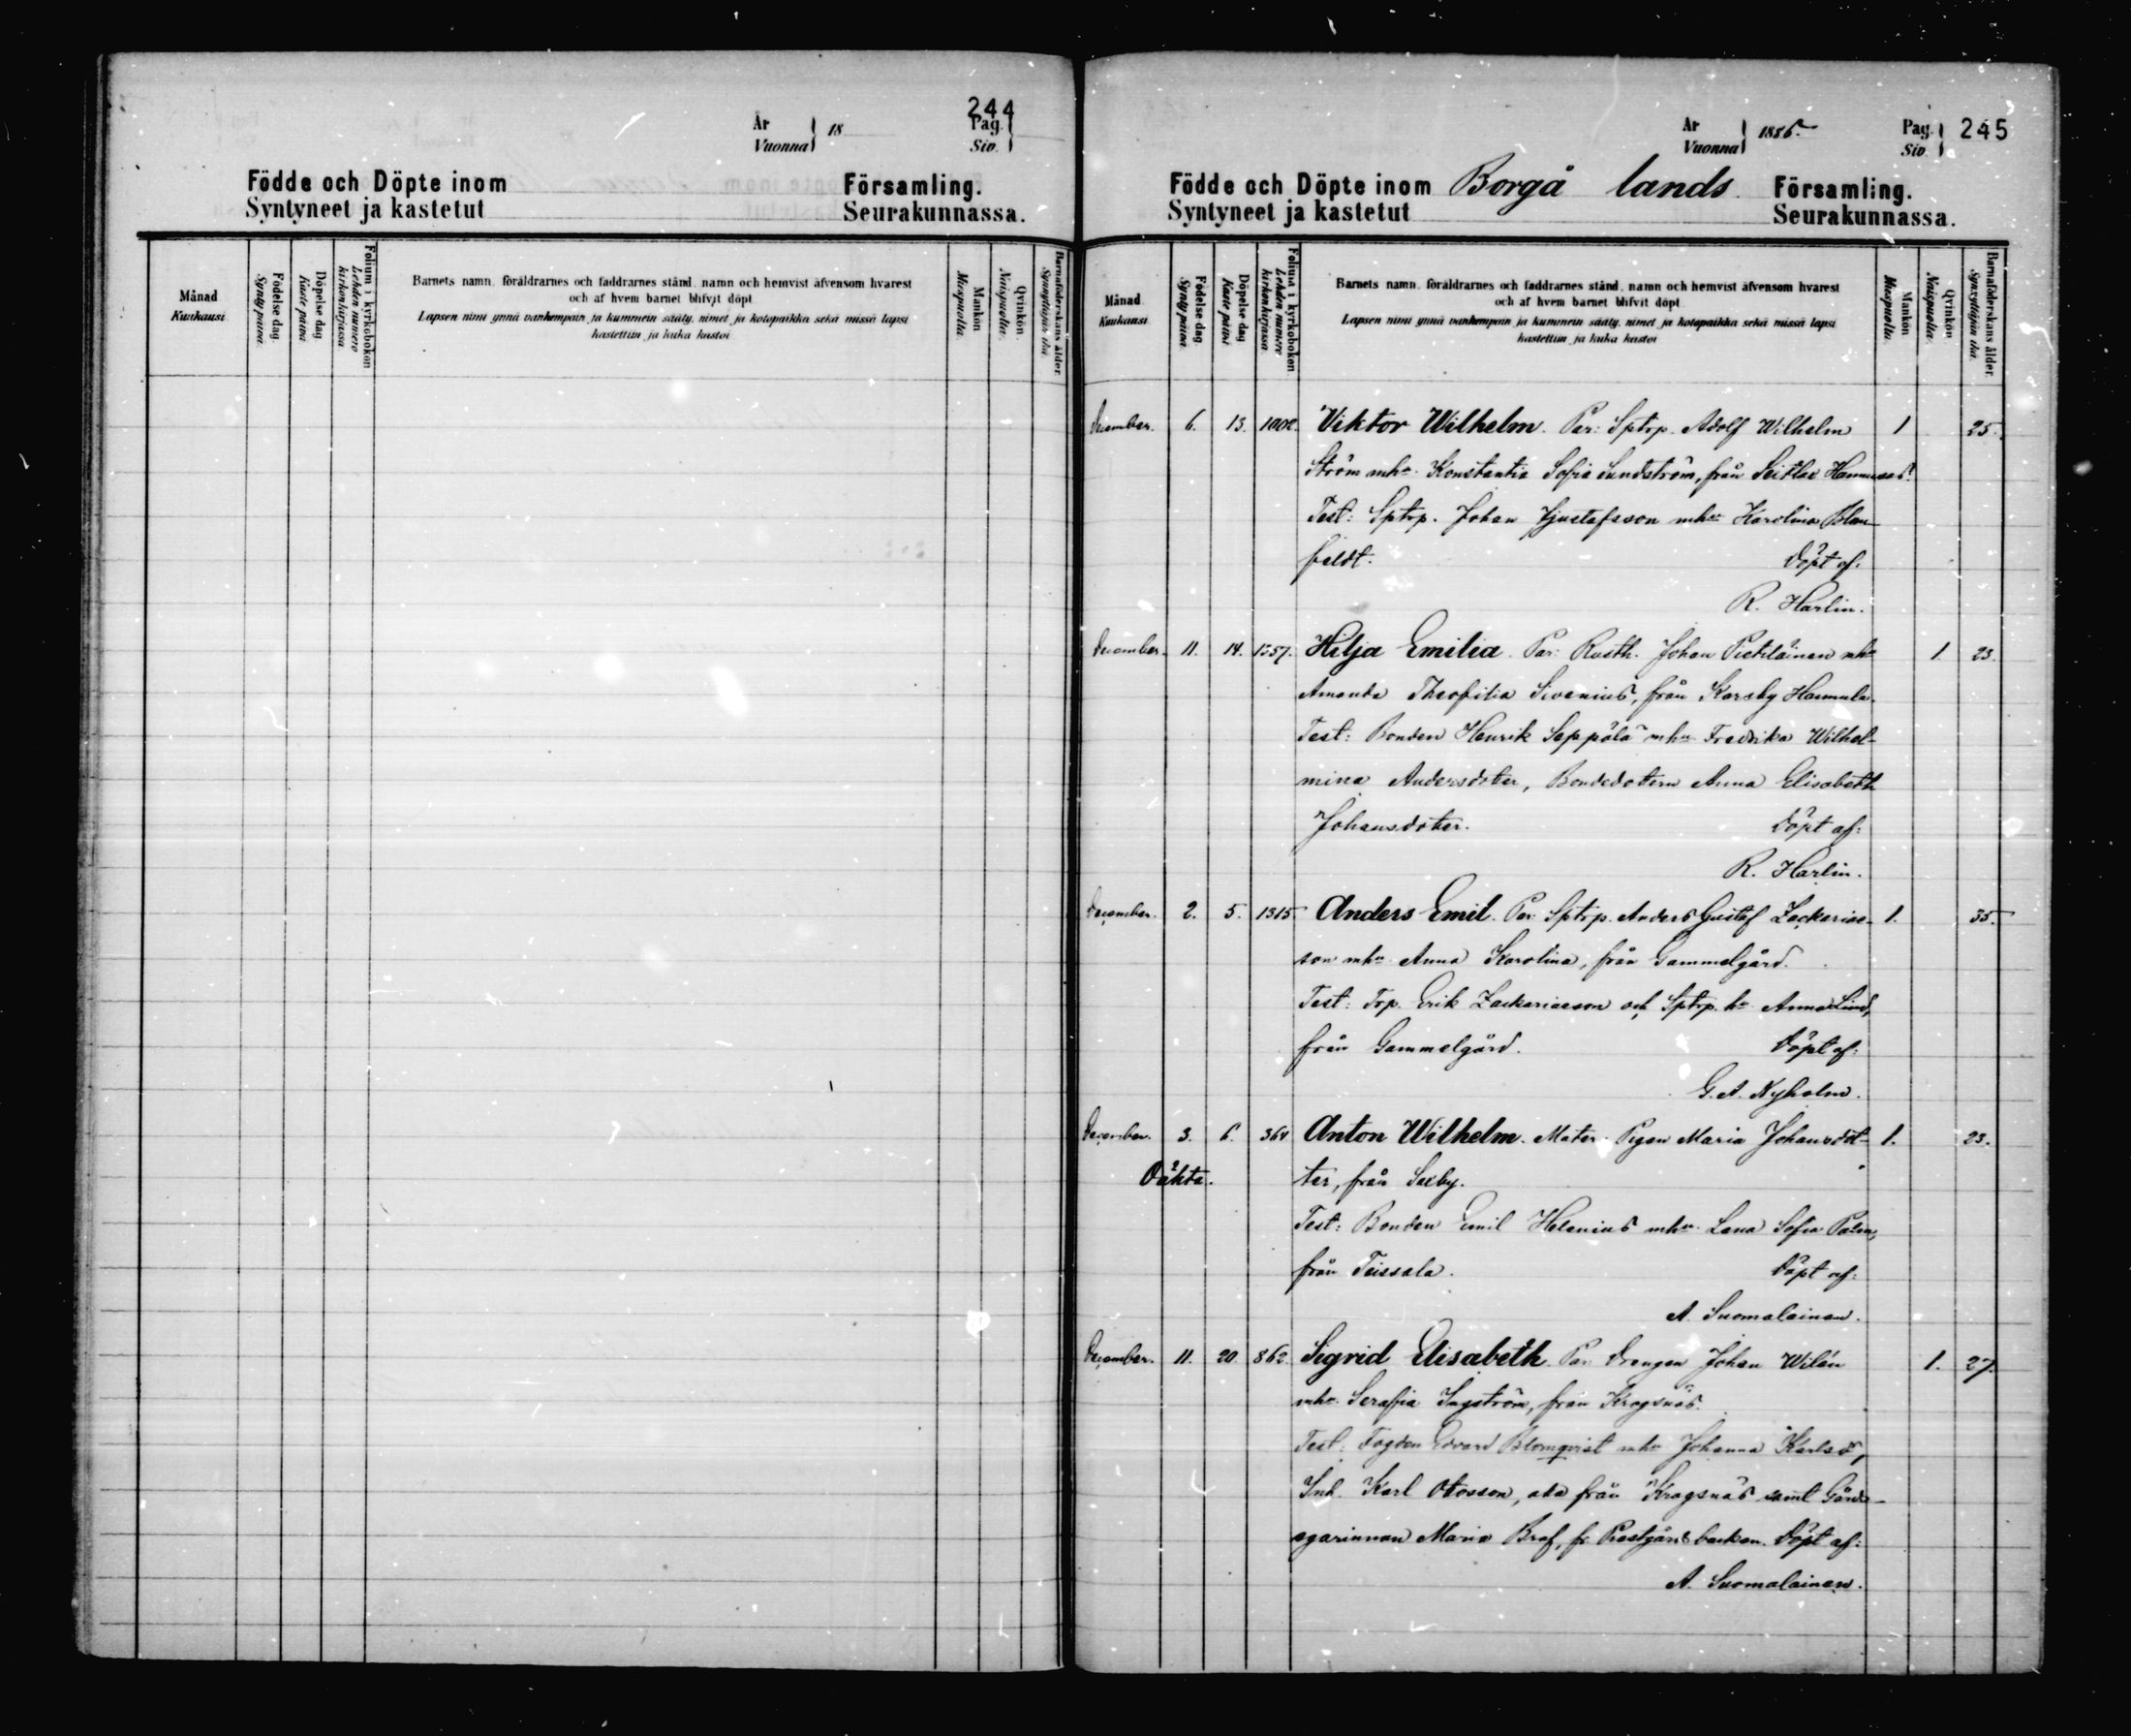 244
År Vuonna 18 Pag. Siv.
Födde och Döpte inom Församling.
Syntyneet ja kastetut Seurakunnassa.
Månad Kuukausi
Födelse dag. Syntypäivä.
Döpelse dag Kaste päivä
Folium i kyrkoboken Lehden numero kirkonkirjassa
Barnets namn, föräldrarnes och faddrarnes stånd, namn och hemvist äfvensom hvarest
och af hvem barnet blifvit döpt.
Lapsen nimi ynnä vanhempain ja kummein sääty, nimet ja kotopaikka sekä missä lapsi
kastettiin ja kuka kastoi
Mankön Miespuolta.
Qvinkön. Naispuolta.
Barnaföderskans ålder. Synnyttäjän ikä.
År Vuonna 1886 Pag. Siv 245
Födde och Döpte inom Borgå lands Församling.
Syntyneet ja kastetut Seurakunnassa.
Månad Kuukausi
Födelse dag Syntypäivä.
Döpelse dag Kaste päivä
Folium i kyrkoboken Lehden numero kirkonkirjassa
Barnets namn, föräldrarnes och faddrarnes stånd, namn och hemvist äfvensom hvarest
och af hvem barnet blifvit döpt.
Lapsen nimi ynnä vanhempain ja kummein sääty, nimet ja kotopaikka sekä missä lapsi
kastettiin ja kuka kastoi
Mankön Miespuolta.
Qvinkön Naispuolta.
Barnaföderskans ålder. Synnyttäjän ikä.
December. 6. 13. Viktor Wilhelm. Par: Sptrp. Adolf Wilhelm 1 25.
Ström mhu Konstantia Sofia Sundström, från Seitlax
Test: Sptrp. Johan Gjustafsson mhu Karolina Blau
feldt. Döpt af:
R. Harlin.
December. 11. 14. 1357. Hilja Emilia Par: Rusth. Johan Pietiläinen mhu 1. 23.
Amanda Theofilia Sivenius, från Karsby Hammula.
Test: Bonden Henrik Seppälä mhu Fredrika Wilhel-
mina Andersdotter, Bondedottern Anna Elisabeth
Johansdotter. Döpt af:
R. Harlin.
December. 2. 5. 1315 Anders Emil. Par: Sptrp. Anders Gustaf Zackarias- 1. 35.
son mhu Anna Karolina, från Gammelgård.
Test: Trp. Erik Zackariasson och Sptrp. hu Anna Lind,
från Gammelgård. Döpt af:
G. A. Nyholm.
December. 3. 6. 364 Anton Wilhelm. Mater: Pigan Maria Johansdot- 1. 23.
Oäkta. ter, från Saxby.
Test: Bonden Emil Helenius mhu Lena Sofia Palm,
från Teissala. Döpt af:
A. Suomalainen.
December. 11. 20. 862. Sigrid Elisabeth Par: Drengen Johan Wilén 1. 27.
mhu Serafia Ingström, från Kragsnäs.
Test: Fogden Edvard Blomqvist mhu Johanna Karlsd,
Inh. Karl Ottosson, alla från Kragsnäs samt Gårds-
egarinnan Maria Braf, fr. Prestgårdsbacken. Döpt af:
A. Suomalainen.